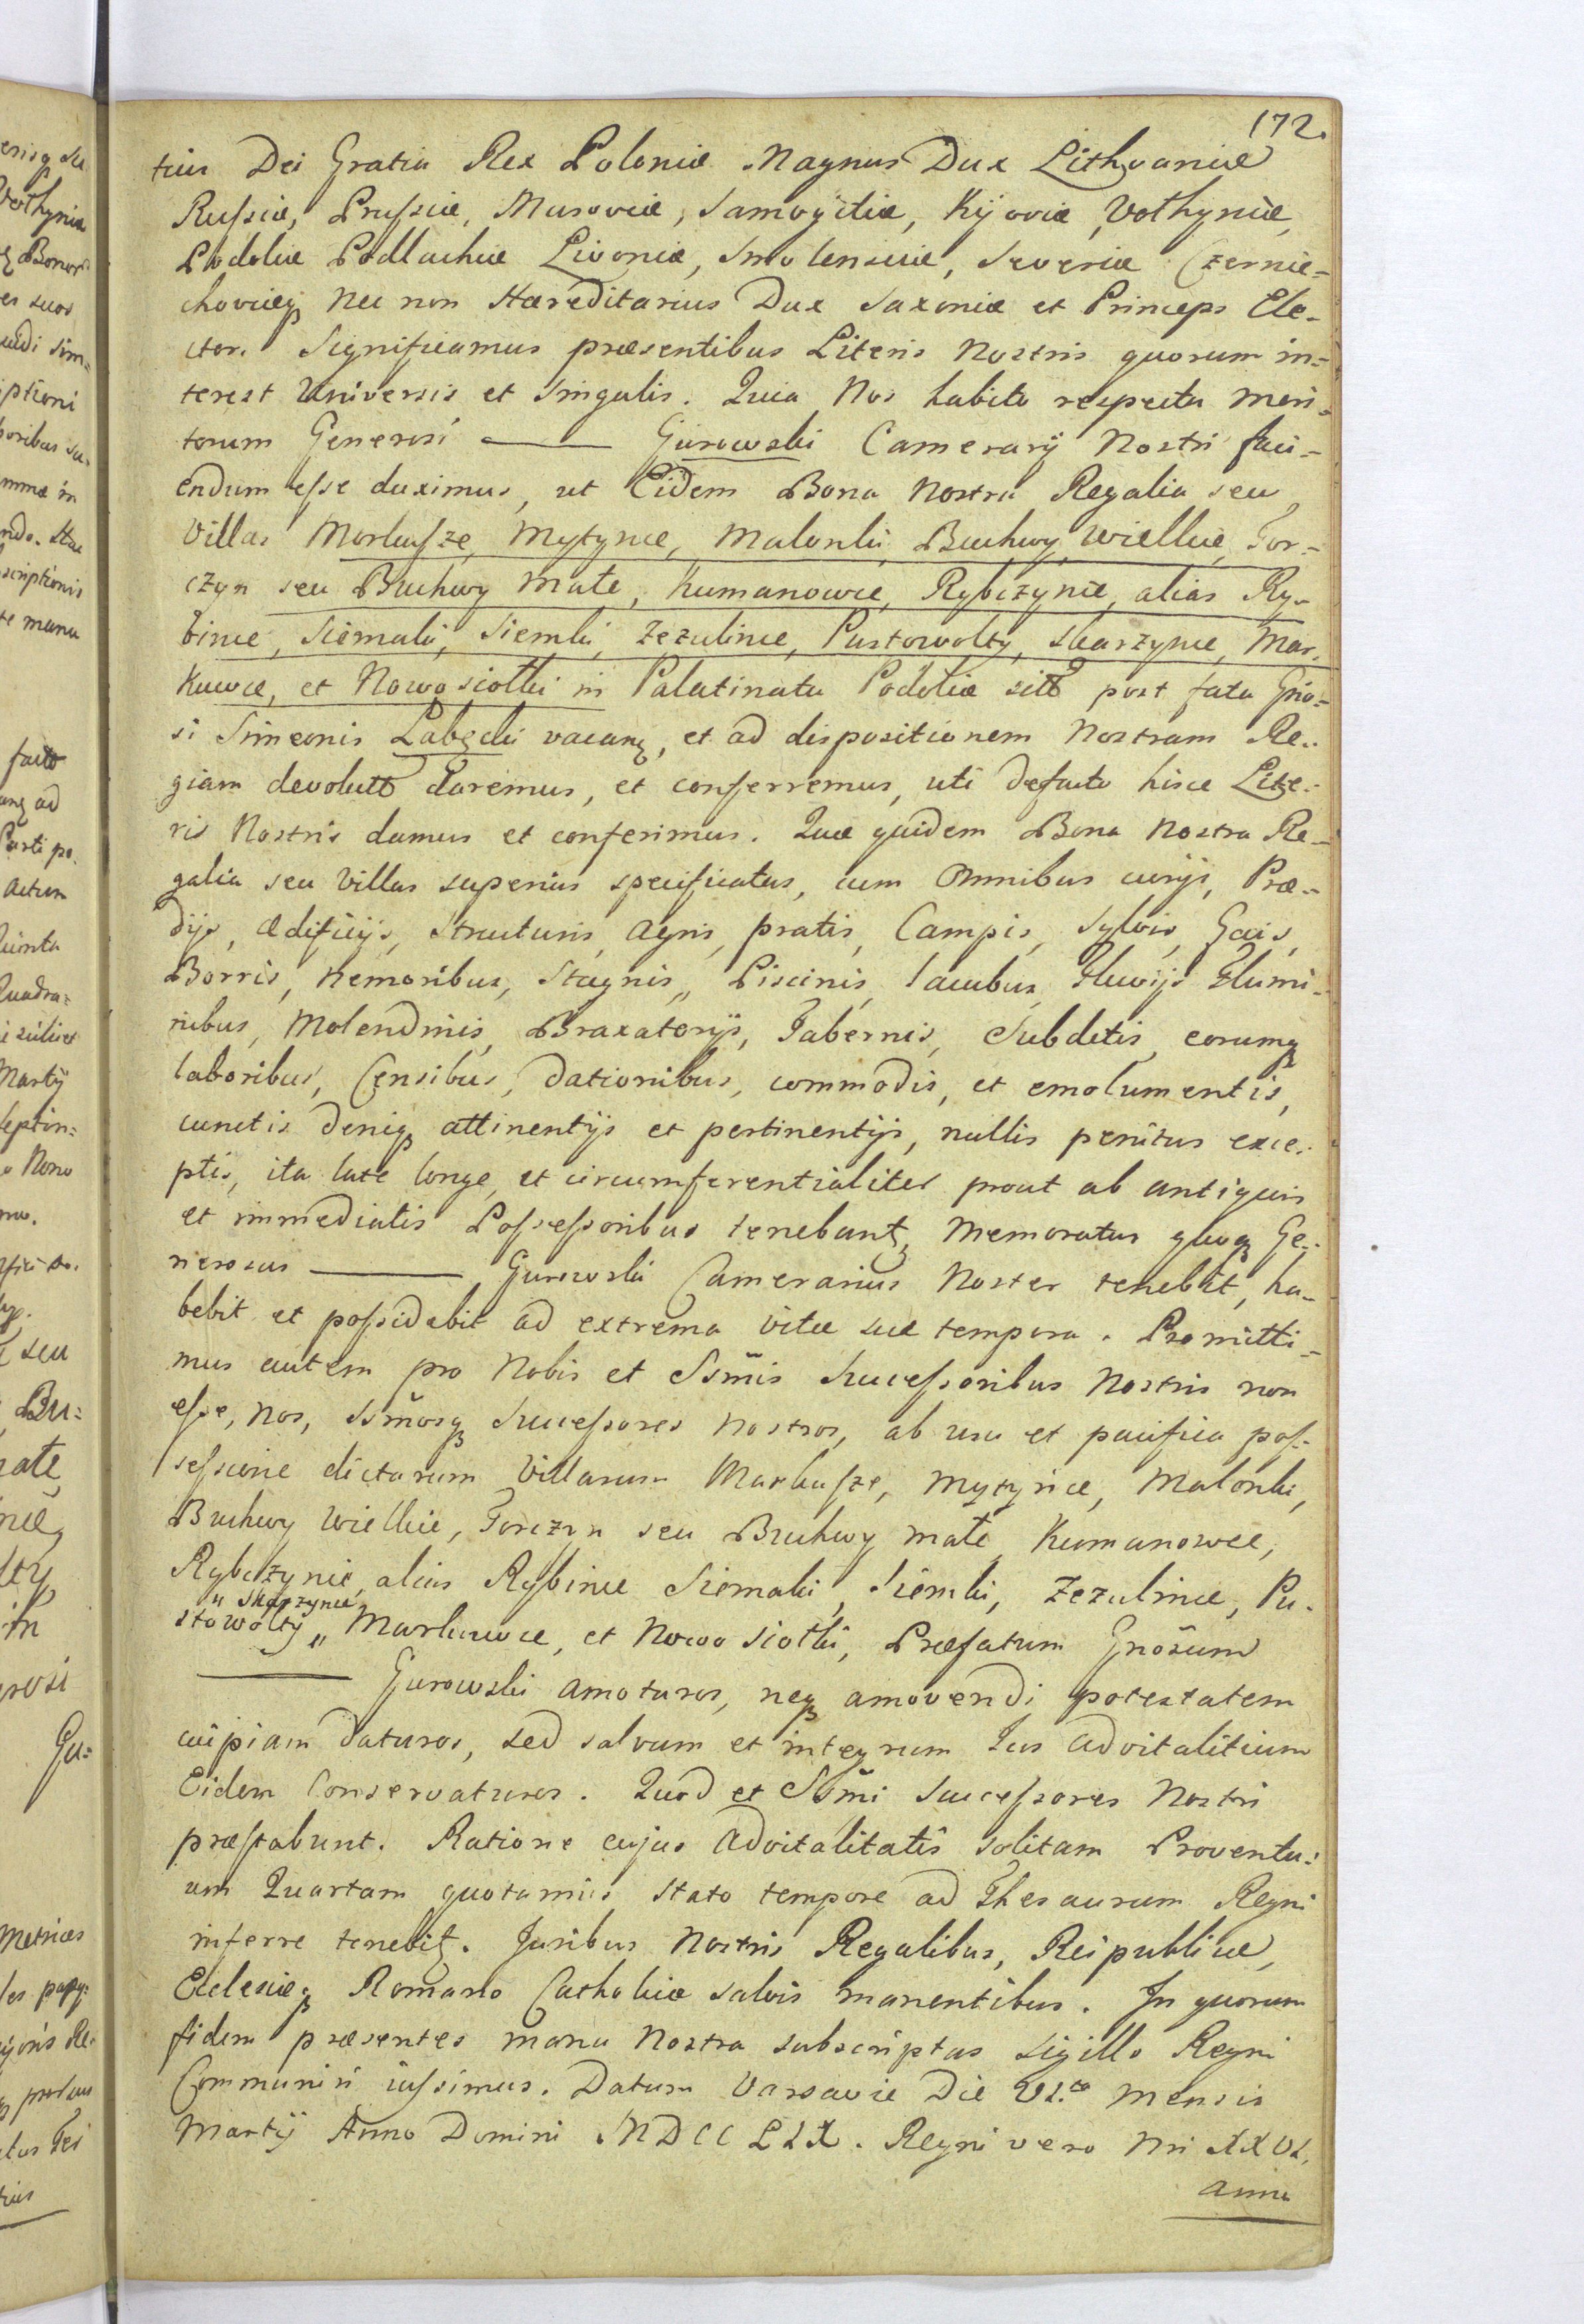 172.
tius Dei Gratia Rex Poloniæ Magnus Dux Lithvaniæ
Russiæ, Prussiæ, Masoviæ, Samogitiæ, Kijoviæ, Volhyniæ,
Podoliæ Podlachiæ Livoniæ, Smolensciæ, Severiæ Czernie-
choviæq nec non Hæreditarius Dux Saxoniæ et Princeps Ele-
ctor. Significamus præsentibus Literis Nostris quorum in-
terest Universis et Singulis. Quia Nos habito respectu meri-
torum Generosi ——— Gurowski Camerarij Nostri faci-
endum esse duximus, ut Eidem Bona Nostra Regalia seu
Villas Markusze, Mytynce, Malonki, Buchwy wielkie, Tor-
czyn seu Buchwy małe, Kumanowce, Rybczynce, alias Ry-
bince, Siemaki, Siemki, Zezulince, Pustowolty, Skarzynce, Mar-
kuwce, et Nowosiołki in Palatinatu Podoliæ sitt post fata Gno-
si Simeonis Labęcki vacan, et ad dispositionem Nostram Re-
giam devolutt daremus, et conferremus, uti defacto hisce Lite-
ris Nostris damus et conferimus. Quæ quidem Bona Nostra Re-
galia seu Villas superius specificatas, cum Omnibus curijs, Præ-
dijs, Ædificijs, Structuris, Agris, pratis, Campis, Sylvis, Gais,
Borris, Nemoribus, Stagnis, Piscinis, lacubus, Fluvijs Flumi-
nibus, Molendinis, Braxatorijs, Tabernis, Subditis, eorumq
laboribus, Censibus, dationibus, commodis, et emolumentis,
cunctis deniq attinentijs et pertinentijs, nullis penitus exce-
ptis, ita late longe, et circumferentialiter prout ab antiquis
et immediatis Possessoribus tenebant, Memoratus quoq Ge-
nerosus ——— Gurowski Camerarius Noster tenebit, ha-
bebit et possidebit ad extrema vitæ suæ tempora. Promitti-
mus autem pro Nobis et Ssmis Successoribus Nostris non
esse, nos, Ssmosq Successores Nostros, ab usu et pacifica pos-
sessione dictarum Villarum Markusze, Mytynce, Malonki,
Buchwy Wielkie, Torczyn seu Buchwy małe Kumanowce,
Rybczynce, alias Rybince Siemaki, Siemki, Zezulince, Pu-
" Skarzynce
stowolty " Markuwce, et Nowo Siołki, Præfatum Gnosum
——— Gurowski amoturos, neq amovendi potestatem
cuipiam daturos, sed salvum et integrum Jus Advitalitium
Eidem Conservaturos. Quod et Ssmi Successores Nostri
præstabunt. Ratione cujus Advitalitatis solitam Proventu-
um Quartam quotannis, stato tempore ad Thesaurum Regni
inferre tenebit. Juribus Nostris Regalibus, Reipublicæ,
Ecclesiæq Romano Catholicæ salvis manentibus. In quorum
fidem præsentes manu Nostra subscriptas Sigillo Regni
Communiri iussimus. Datum Varsaviæ Die VI.ta Mensis
Martij Anno Domini MDCCLIX. Regni vero Nri XXVI.
anno